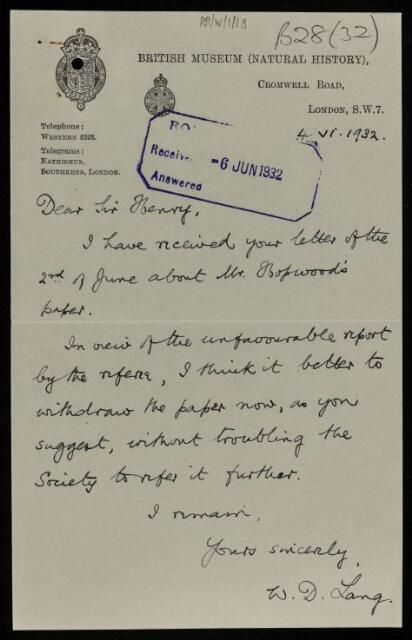 RR/W/1/18
B28(32)
BRITISH MUSEUM (NATURAL HISTORY),
CROMWELL ROAD,
LONDON, S.W.7.
Telephone:
WESTERN 6323.
Telegrams:
NATHISMUS,
SOUTHKENS, LONDON.
4. VI. 1932.
Received -6 JUN 1932
Answered
Dear Sir Henry,
I have received your letter of the
2nd of June about Mr. Hopwood's
paper.
In view of the unfavourable report
by the referee, I think it better to
withdraw the paper now, as you
suggest, without troubling the
Society to refer it further.
I remain,
Yours sincerely,
W. D. Lang.